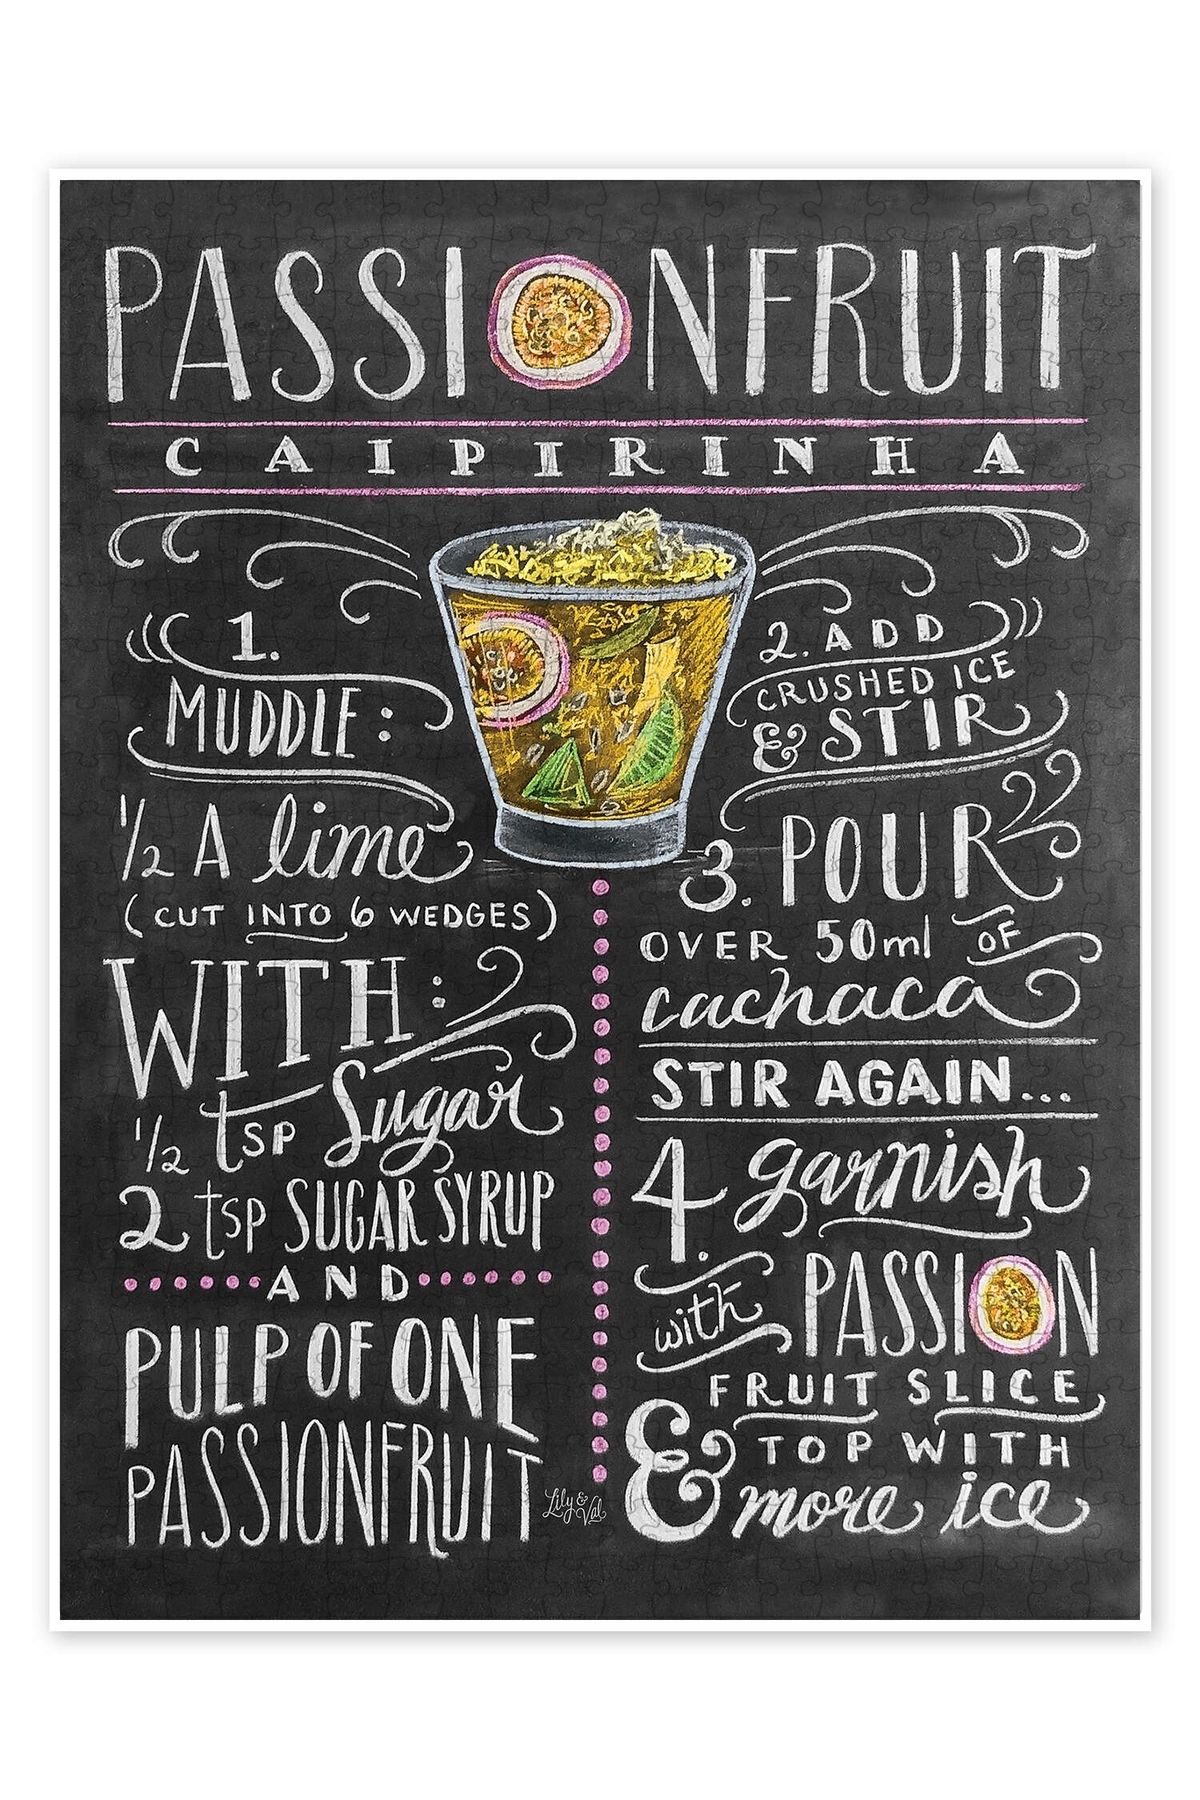 PASSIONFRUIT
CAIPIRINHA
1.
MUDDLE:
½ A lime
(CUT INTO 6 WEDGES)
WITH:
½ tsp Sugar
2 tsp SUGAR SYRUP
AND
PULP OF ONE
PASSIONFRUIT
2. ADD
CRUSHED ICE
& STIR
3. POUR
OVER 50ml OF
cachaca
STIR AGAIN...
4. garnish
with PASSION
FRUIT SLICE
& TOP WITH
more ice
Lily &
Val